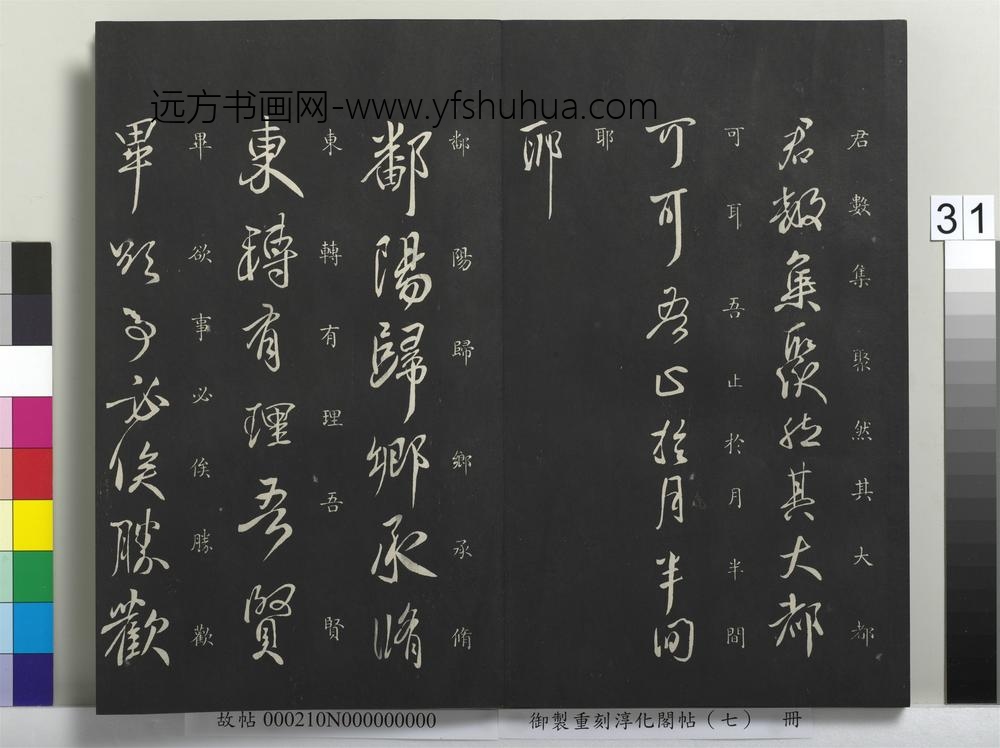 远方书画网-www.yfshuhua.com
君數集聚然其大都
君數集聚然其大都
可耳吾止於月半間
可耳吾止於月半間
耶
耶
鄱陽歸鄉承脩
鄱陽歸鄉承脩
東轉有理吾賢
東轉有理吾賢
畢欲事必俟勝歡
畢欲事必俟勝歡
31
故帖 000210N000000000
御製重刻淳化閣帖（七） 冊